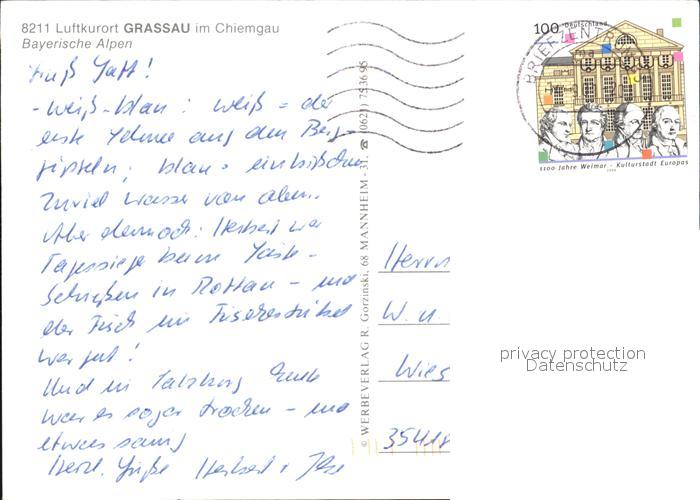 8211 Luftkurort GRASSAU im Chiemgau
Bayerische Alpen
Grüß Gott!
- weiß-blau: weiß = der
erste Schnee auf den Berg-
gipfeln; blau = ein bißchen
zuviel Wasser von oben.
Aber dennoch: Herbert war
Tagessieger beim
schießen in Rottau - und
der Fisch im Fischerstüberl
war gut!
Und in Salzburg Ende
war es sogar trocken - und
etwas sonnig
Herzl. Grüße Herbert +
© WERBEVERLAG R. Gorzinski, 68 MANNHEIM - 31, ☎ (0621) 75 36 95
100 Deutschland
BRIEFZENTRUM
1100 Jahre Weimar - Kulturstadt Europas
1999
Herrn
W. u.
Wies
35418
privacy protection
Datenschutz